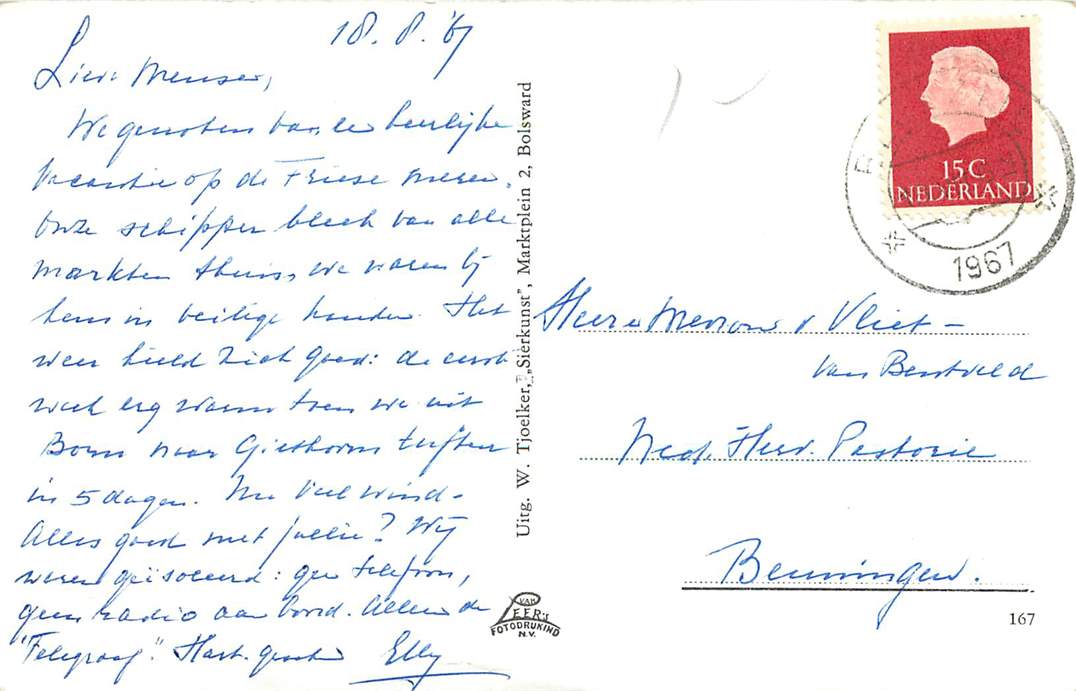 18.8.'67
Lieve mensen,
We genoten van een heerlijke
vacantie op de Friese meren.
Onze schipper bleek van alle
markten thuis, we waren bij
hem in veilige handen. Het
weer hield zich goed: de eerste
week erg warm toen we uit
Born naar Giethoorn tuften
in 5 dagen. Nu veel wind.
Alles goed met jullie? Wij
waren geïsoleerd: geen telefoon,
geen radio aan boord. Alleen de
"Telegraaf". Hart. groeten Elly
Uitg. W. Tjoelker, „Sierkunst”, Marktplein 2, Bolsward
VAN LEER's
FOTODRUKIND
N.V.
15 C
NEDERLAND
1967
Heer en Mevrouw v Vliet -
van Bentveld
Ned. Herv. Pastorie
Beuningen.
167